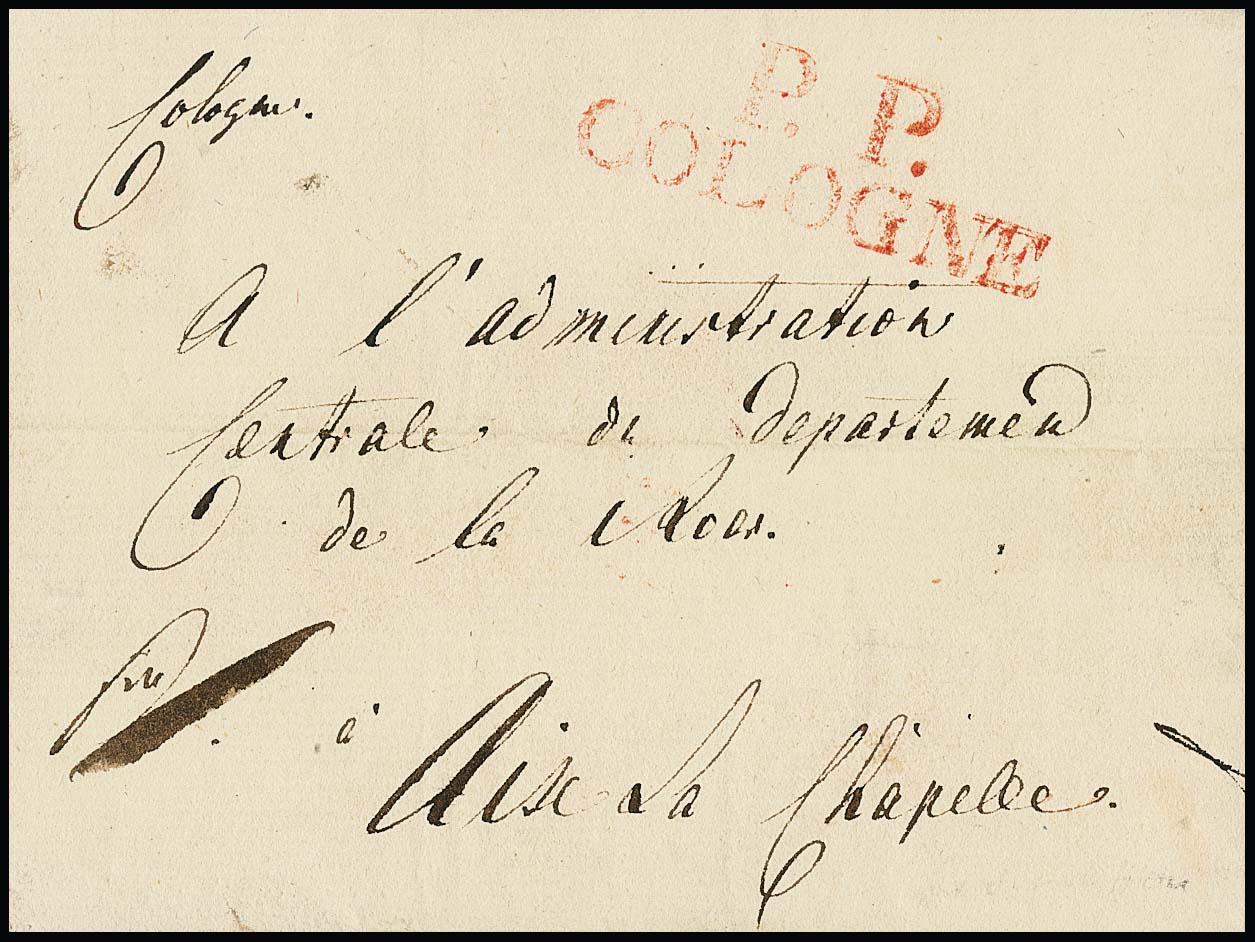 Cologne.
P. P.
COLOGNE
A l'administration
Centrale du departement
de la Roer.
à Aix La Chapelle.